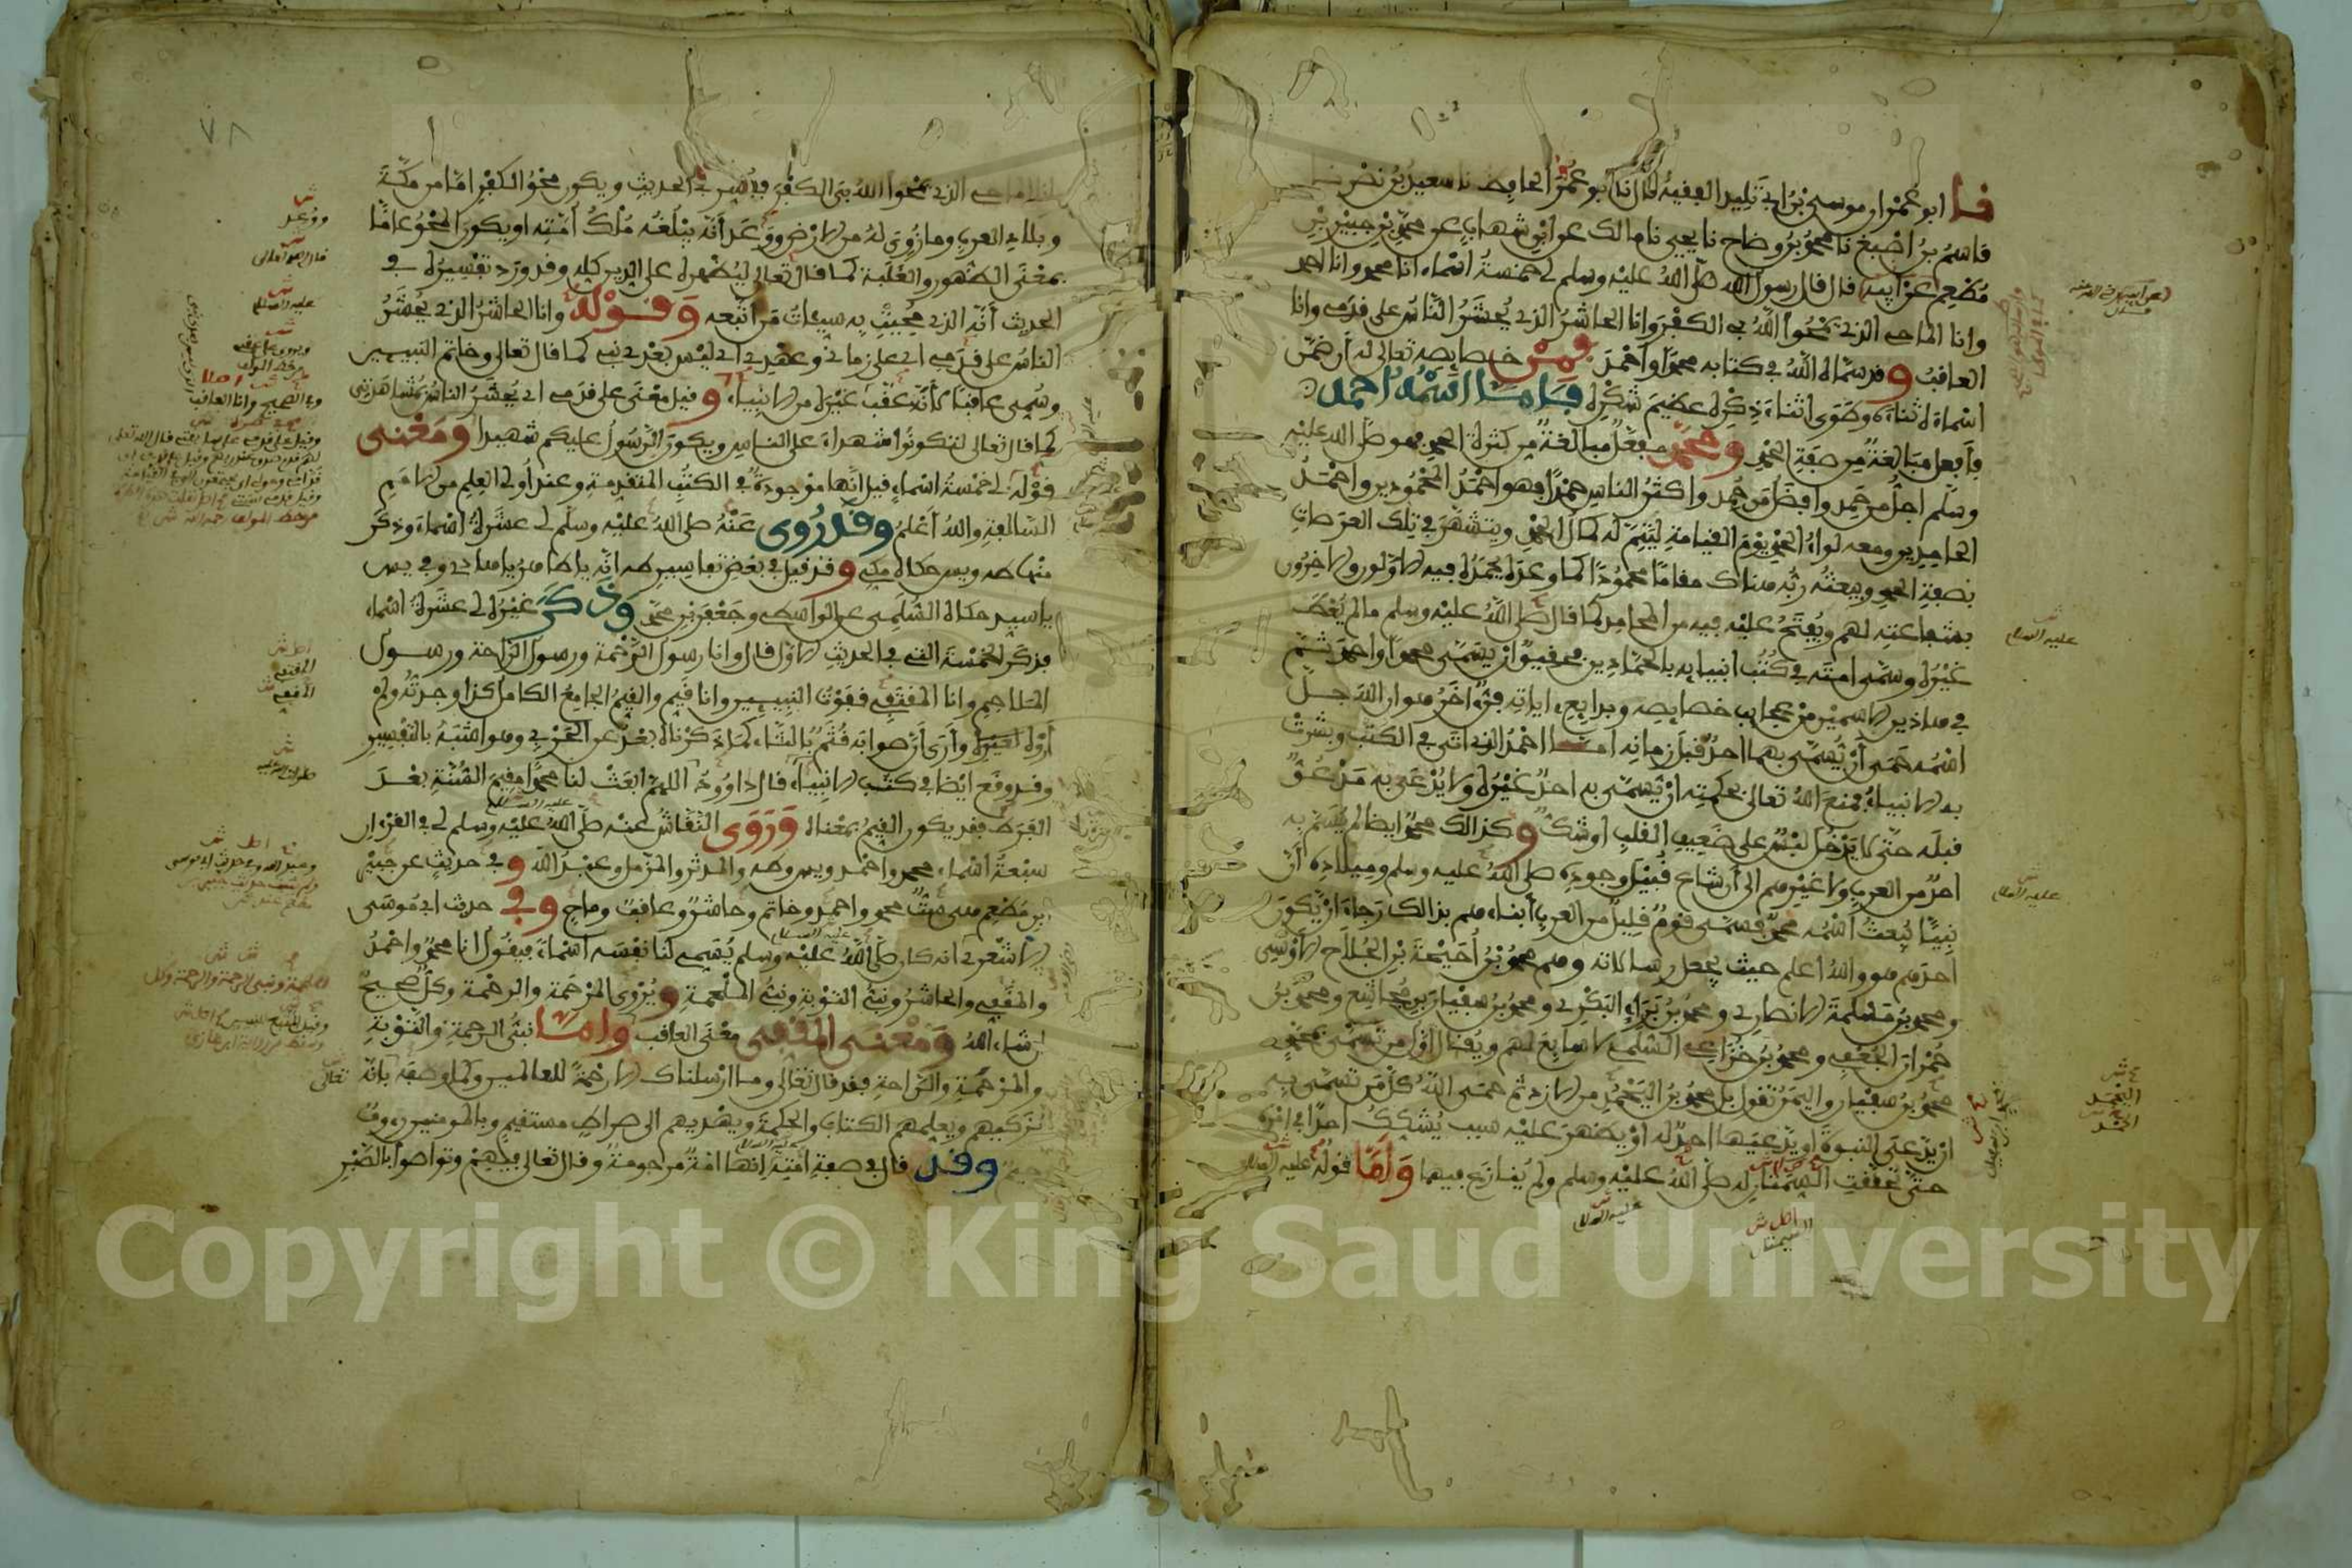 نا ابو عمران موسى بن ابي تليد الفقيه قال نا ابو عمر الحافظ نا سعيد بن نصر نا
قاسم بن اصبغ نا محمد بن وضاح نا يحيى نا مالك عن ابن شهاب عن محمد بن جبير بن
مطعم عن ابيه قال قال رسول الله صلى الله عليه وسلم لي خمسة اسماء انا محمد وانا احمد
وانا الماحي الذي يمحوا الله بي الكفر وانا الحاشر الذي يحشر الناس على قدمي وانا
العاقب وقد سماه الله في كتابه محمدا واحمد فمن خصايصه تعالى له ان ضمن
اسماءه ثناءه وطوى اثناء ذكره عظيم شكره فاما اسمه احمد
فافعل مبالغة من صفة الحمد ومحمد مفعل مبالغة من كثرة الحمد فهو صلى الله عليه
وسلم اجل من حمد وافضل من حمد واكثر الناس حمدا فهو احمد المحمودين واحمد
الحامدين ومعه لواء الحمد يوم القيامة ليتم له كمال الحمد ويتشهر في تلك العرصات
بصفة الحمد ويبعثه ربه هناك مقاما محمودا كما وعده يحمده فيه الاولون والاخرون
بشفاعته لهم ويفتح عليه فيه من المحامد كما قال صلى الله عليه وسلم ما لم يعط
غيره وسمى امته في كتب انبيايه بالحمادين فحقيق ان يسمى محمدا واحمد ثم
في هاذين الاسمين من عجايب خصايصه وبدايع اياته فن اخر هو ان الله جل
اسمه حمى ان يسمى بهما احد قبل زمانه اما احمد الذي اتى في الكتب وبشرت
به الانبياء فمنع الله تعالى بحكمته ان يسمى به احد غيره ولا يدعى به مدعو
قبله حتى لا يدخل لبس على ضعيف القلب او شك وكذالك محمد ايضا لم يتسم به
احد من العرب ولا غيرهم الى ان شاع قبيل وجوده صلى الله عليه وسلم وميلاده ان
نبيا يبعث اسمه محمد فسمى قوم قليل من العرب ابناءهم بذالك رجاء ان يكون
احدهم هو والله اعلم حيث يجعل رسالاته وهم محمد بن احيحة بن الجلاح الاوسي
ومحمد بن مسلمة الانصاري ومحمد بن براء البكري ومحمد بن سفيان بن مجاشع ومحمد بن
حمران الجعفي ومحمد بن خزاعي السلمي لا سابع لهم ويقال اول من تسمى بمحمد
محمد بن سفيان واليمن تقول بل محمد بن اليحمد من الازد ثم حمى الله كل من تسمى به
ان يدعى النبوة او يدعيها احد له او يظهر عليه سبب يشكك احدا في امره
حتى تحققت السمتان له صلى الله عليه وسلم ولم ينازع فيهما واما قوله عليه السلام
عليه السلام
عليه السلام
عليه السلام
اصل ش
٧٨
انا الماحي الذي يمحوا الله بي الكفر ففسر في الحديث ويكون محو الكفر اما من مكة
وبلاد العرب وما زوى له من الارض ووعد انه يبلغه ملك امته او يكون المحو عاما
بمعنى الظهور والغلبة كما قال تعالى ليظهره على الدين كله وقد ورد تفسيره في
الحديث انه الذي محيت به سيئات من اتبعه وقوله وانا الحاشر الذي يحشر
الناس على قدمي اي على زماني وعهدي اي ليس بعدي نبي كما قال تعالى وخاتم النبيين
وسمي عاقبا لانه عقب غيره من الانبياء وقيل معنى على قدمي اي يحشر الناس بمشاهدتي
كما قال تعالى لتكونوا شهداء على الناس ويكون الرسول عليكم شهيدا ومعنى
قوله لي خمسة اسماء قيل انها موجودة في الكتب المتقدمة وعند اولي العلم من الامم
السالفة والله اعلم وقد روي عنه صلى الله عليه وسلم لي عشرة اسماء وذكر
منها طه ويس حكاه مكي وقد قيل في بعض تفاسير طه انه يا طاهر يا هادي وفي يس
يا سيد حكاه السلمي عن الواسطي وجعفر بن محمد وذكر غيره لي عشرة اسماء
فذكر الخمسة التي في الحديث الاول قال وانا رسول الرحمة ورسول الراحة ورسول
الملاحم وانا المقفي قفوت النبيين وانا قيم والقيم الجامع الكامل كذا وجدته ولم
اروه وارى ان صوابه قثم بالثاء كما ذكرناه بعد عن الحربي وهو اشبه بالتفسير
وقد وقع ايضا في كتب الانبياء قال داوود اللهم ابعث لنا محمدا مقيم السنة بعد
الفترة فقد يكون القيم بمعناه وروى النقاش عنه صلى الله عليه وسلم لي في القرءان
سبعة اسماء محمد واحمد ويس وطه والمدثر والمزمل وعبد الله وفي حديث عن جبير
بن مطعم هي ست محمد واحمد وخاتم وحاشر وعاقب وماح وفي حديث ابي موسى
الاشعري انه كان صلى الله عليه وسلم يسمي لنا نفسه اسماء فيقول انا محمد واحمد
والمقفي والحاشر ونبي التوبة ونبي الملحمة ويروى المرحمة والرحمة وكل صحيح
ان شاء الله ومعنى المقفي معنى العاقب واما نبي الرحمة والتوبة
والمرحمة والراحة فقد قال تعالى وما ارسلناك الا رحمة للعالمين وكما وصفه بانه
يزكيهم ويعلمهم الكتاب والحكمة ويهديهم الى صراط مستقيم وبالمومنين رءوف
رحيم وقد قال في صفة امته انها امة مرحومة وقال تعالى فيهم وتواصوا بالصبر
ووعد
عليه السلام
وفي الصحيح وانا العاقب
المقفي
تعالى
Copyright © King Saud University